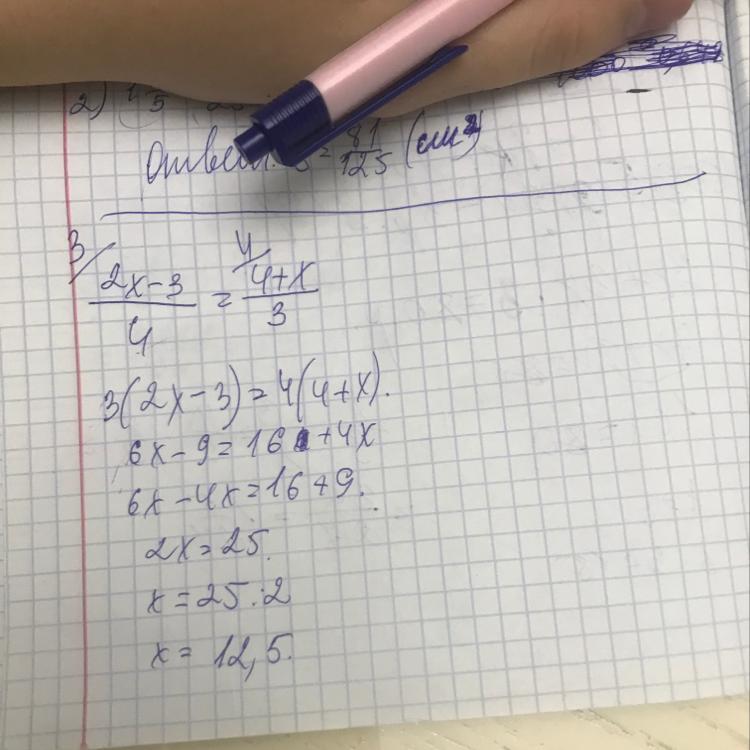 2) 1/5
Ответ: S = 81/125 (см²)
3/ (2x-3)/4 = 4/ (4+x)/3
3(2x-3)=4(4+x).
6x-9=16+4x
6x-4x=16+9.
2x=25.
x=25:2
x=12,5.